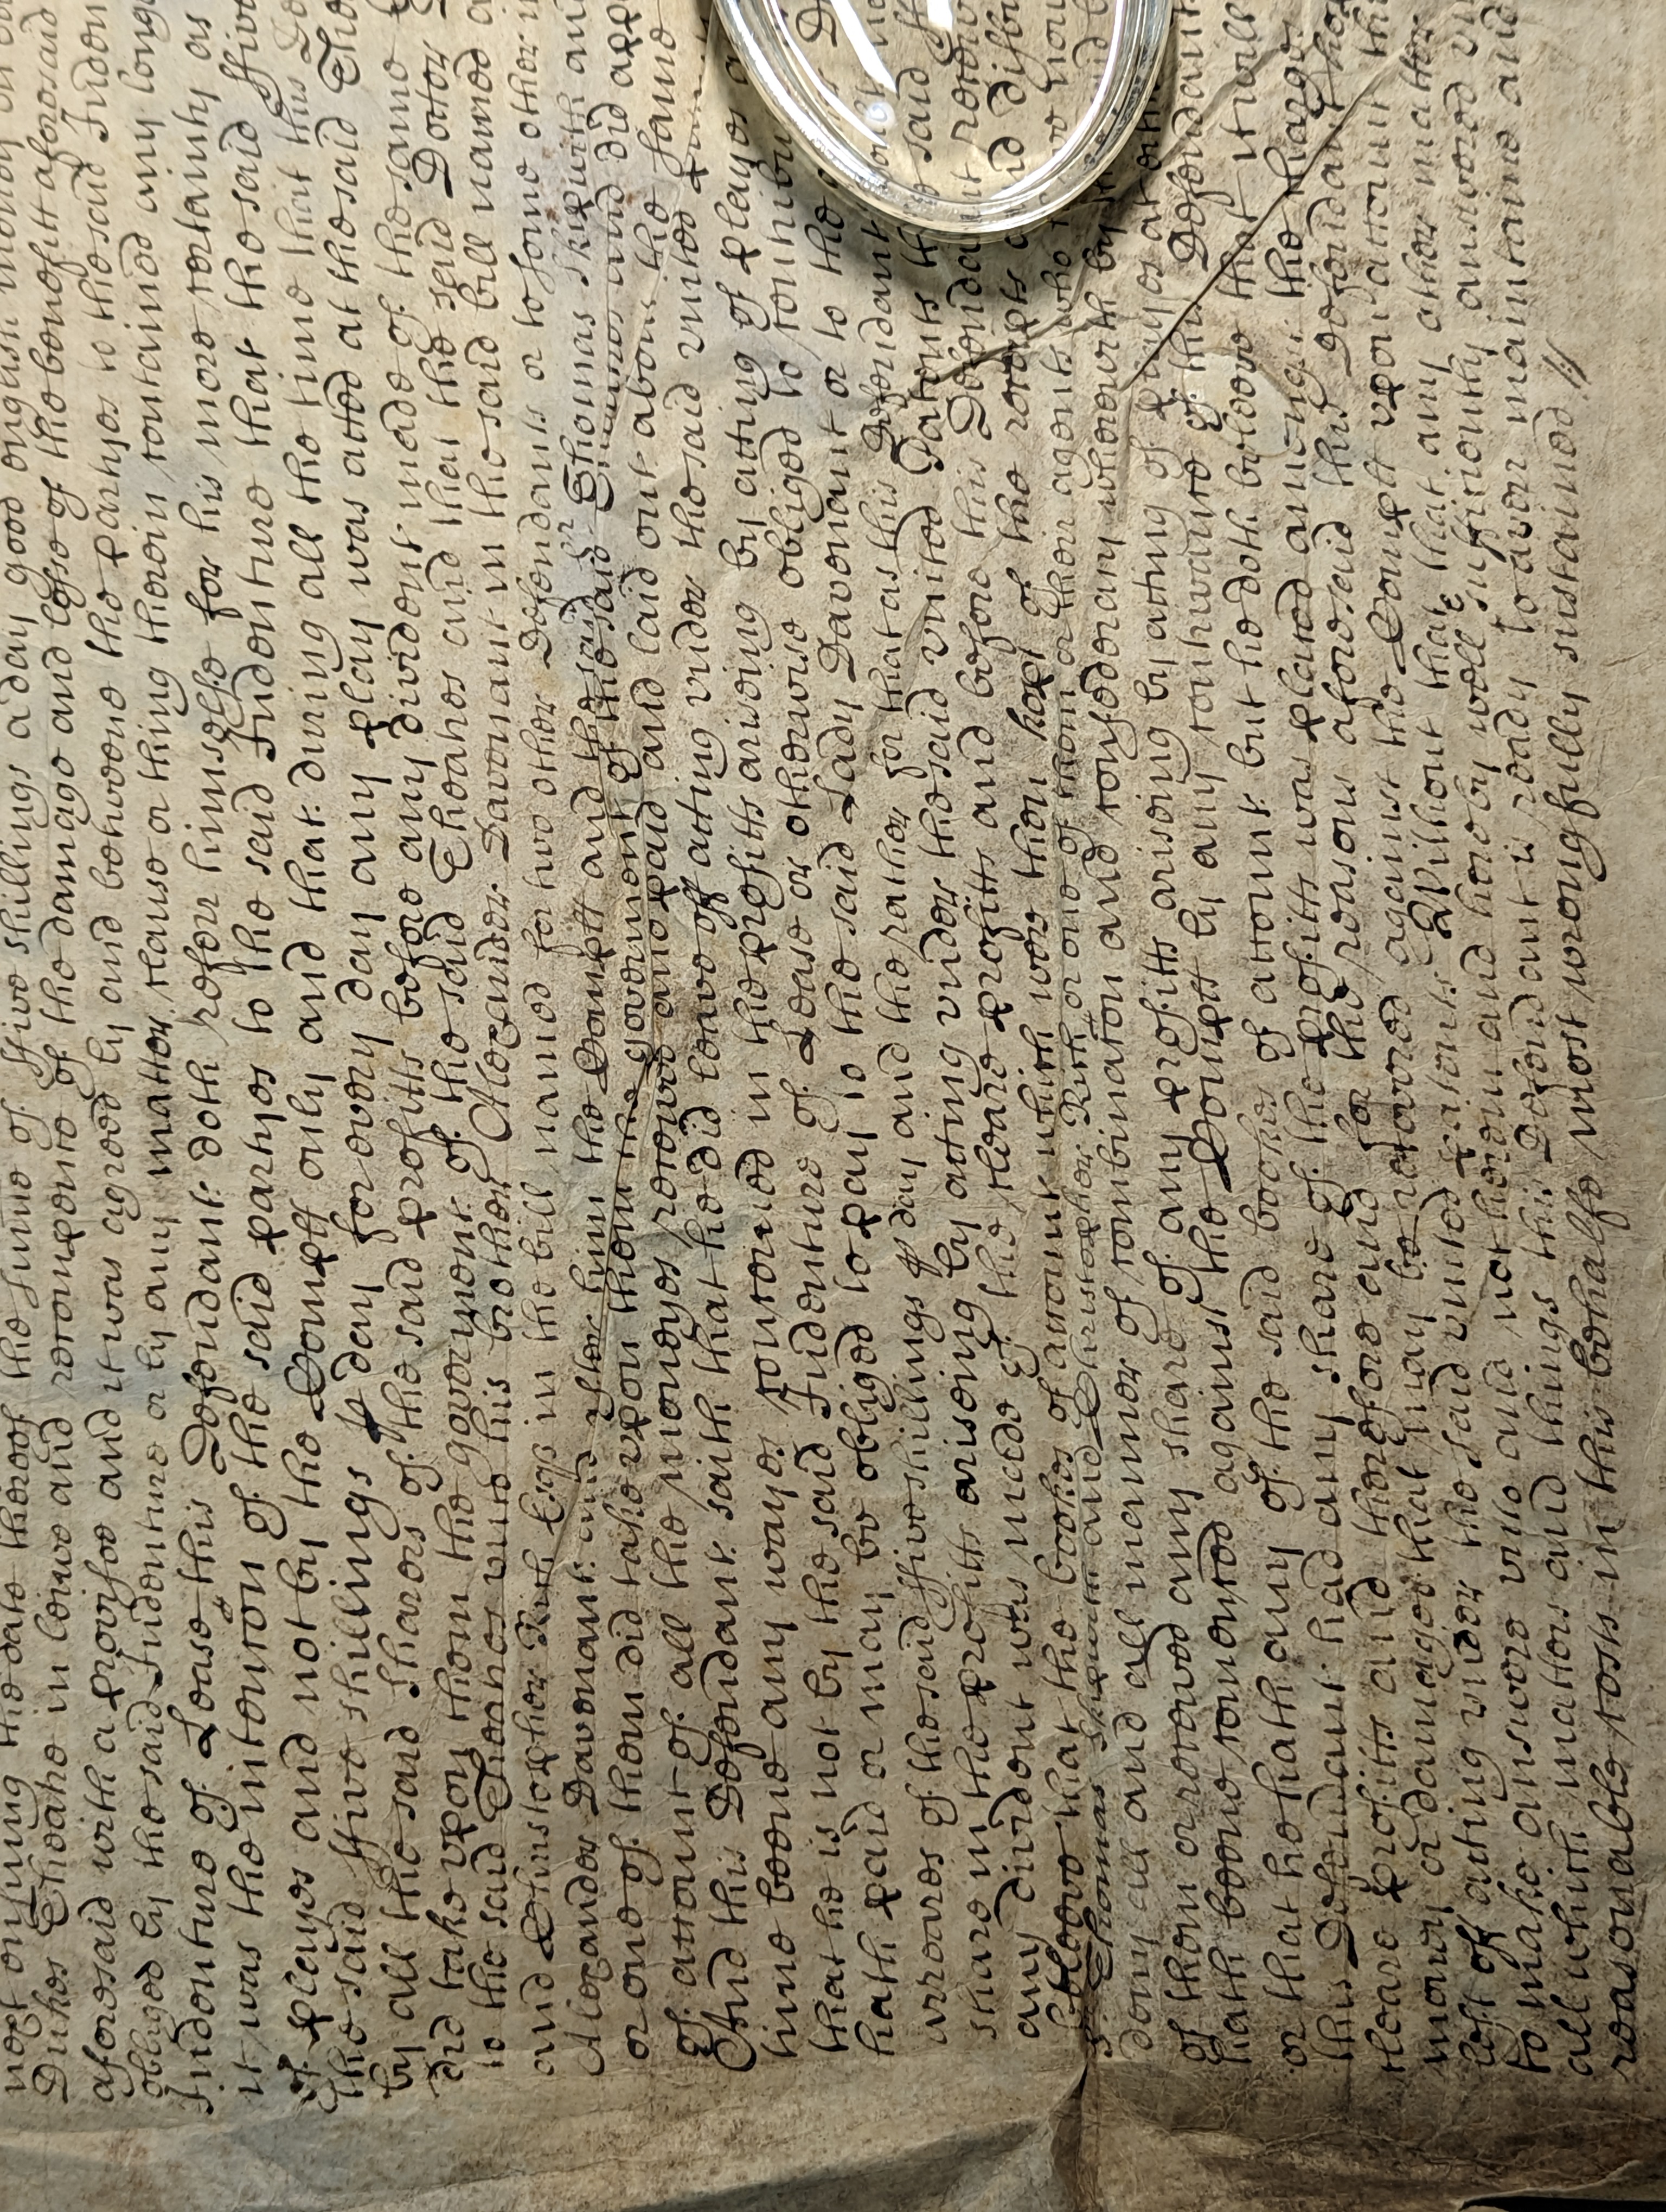 next ensuing the date thereof the sume of ffive shillings a day good english money
Dukes Theatre in leiwe and recompence of the damage and losse of the benefitt aforesaid
aforesaid with a provisoe and it was agreed by and betweene the partyes to the said Inden
obliged by the said Indenture or by any matter clause or thing therein contained any long
Indenture of Lease this Defendant doth referr himselfe for his more certainty as
it was the intencon of the said partyes to the said Indenture that the said ffive
of playes and not by the Complt only and that during all the time that this De
the said ffive shillings p day for every day any play was acted at the said Thea
by all the said sharers of the said profitts before any divident made of the same
did take vpon them the government of the said Theatre and that the said Doctor
to the said Theatre unto his brother Alexander Davenant in the said bill named
and Christopher Rich Esqr in the bill named for two other Defendants or to some other
Alexander Davenant and after him the Complt and the said Sr Thomas Skipwith and
or one of them did take vpon them the government of the said and did app
of account of all the moneyes received and paid and laid out about the same
And this Defendant saith that he did leave off acting vnder the said vnited
time beene any wayes concerned in the profitts ariseing by acting of playes
that he is not by the said Indenture of Lease or otherwise obliged to contribu
hath paid or may be obliged to pay to the said Lady Davenant or to the
arreares of the said ffive shillings p day and the rather for that as this Defendant
share in the profitts ariseing by acting vnder the said vnited Patents the said
any divident was made of the cleare profitts and before this Defendant receiv
beleeve that the bookes of account which were then kept of the receipts and disbu
Sr Thomas Skipwith and Christopher Rich or one of them or their agents who
deny all and all manner of combinacon and confederacy wherewith by the said
of them or received any share of any profitts arising by acting of playes at
hath beene concerned against the Complt by any contrivance of this Defendant
or that he hath any of the said bookes of account but he doth beleeve that it will
this Defendant had any share of the profitts was placed amongst the charge
cleare profitts and therefore and for the reasons aforesaid this Defendant hop
money or damages that may be recovered against the Complt vpon account
left off acting vnder the said vnited Patents Without that that any other matter
to make answere vnto and not herein and hereby well sufficiently answered vn
all which matters and things this Defendant is ready to averr maintaine and
reasonable costs in this behalfe most wrongfully sustained